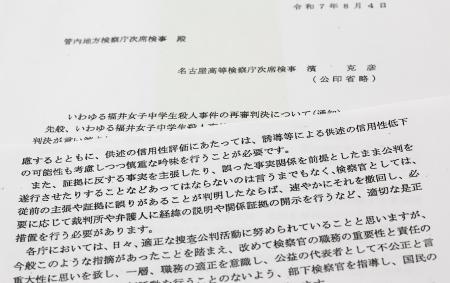 令和7年8月4日
管内地方検察庁次席検事 殿
名古屋高等検察庁次席検事 濱 克彦
(公印省略)
いわゆる福井女子中学生殺人事件の再審判決について(通知)
先般、いわゆる福井女子中学生殺人事件
慮するとともに、供述の信用性評価にあたっては、誘導等による供述の信用性低下
の可能性も考慮しつつ慎重な吟味を行うことが必要です。
また、証拠に反する事実を主張したり、誤った事実関係を前提としたまま公判を
遂行させたりすることなどあってはならないのは言うまでもなく、検察官としては、
従前の主張や証拠に誤りがあることが判明したならば、速やかにそれを撤回し、必
要に応じて裁判所や弁護人に経緯の説明や関係証拠の開示を行うなど、適切な是正
措置を行う必要があります。
各庁においては、日々、適正な捜査公判活動に努められていることと思いますが、
今般このような指摘があったことを踏まえ、改めて検察官の職務の重要性と責任の
重大性に思いを致し、一層、職務の適正を意識し、公益の代表者として不公正と言
行うことのないよう、部下検察官を指導し、国民の